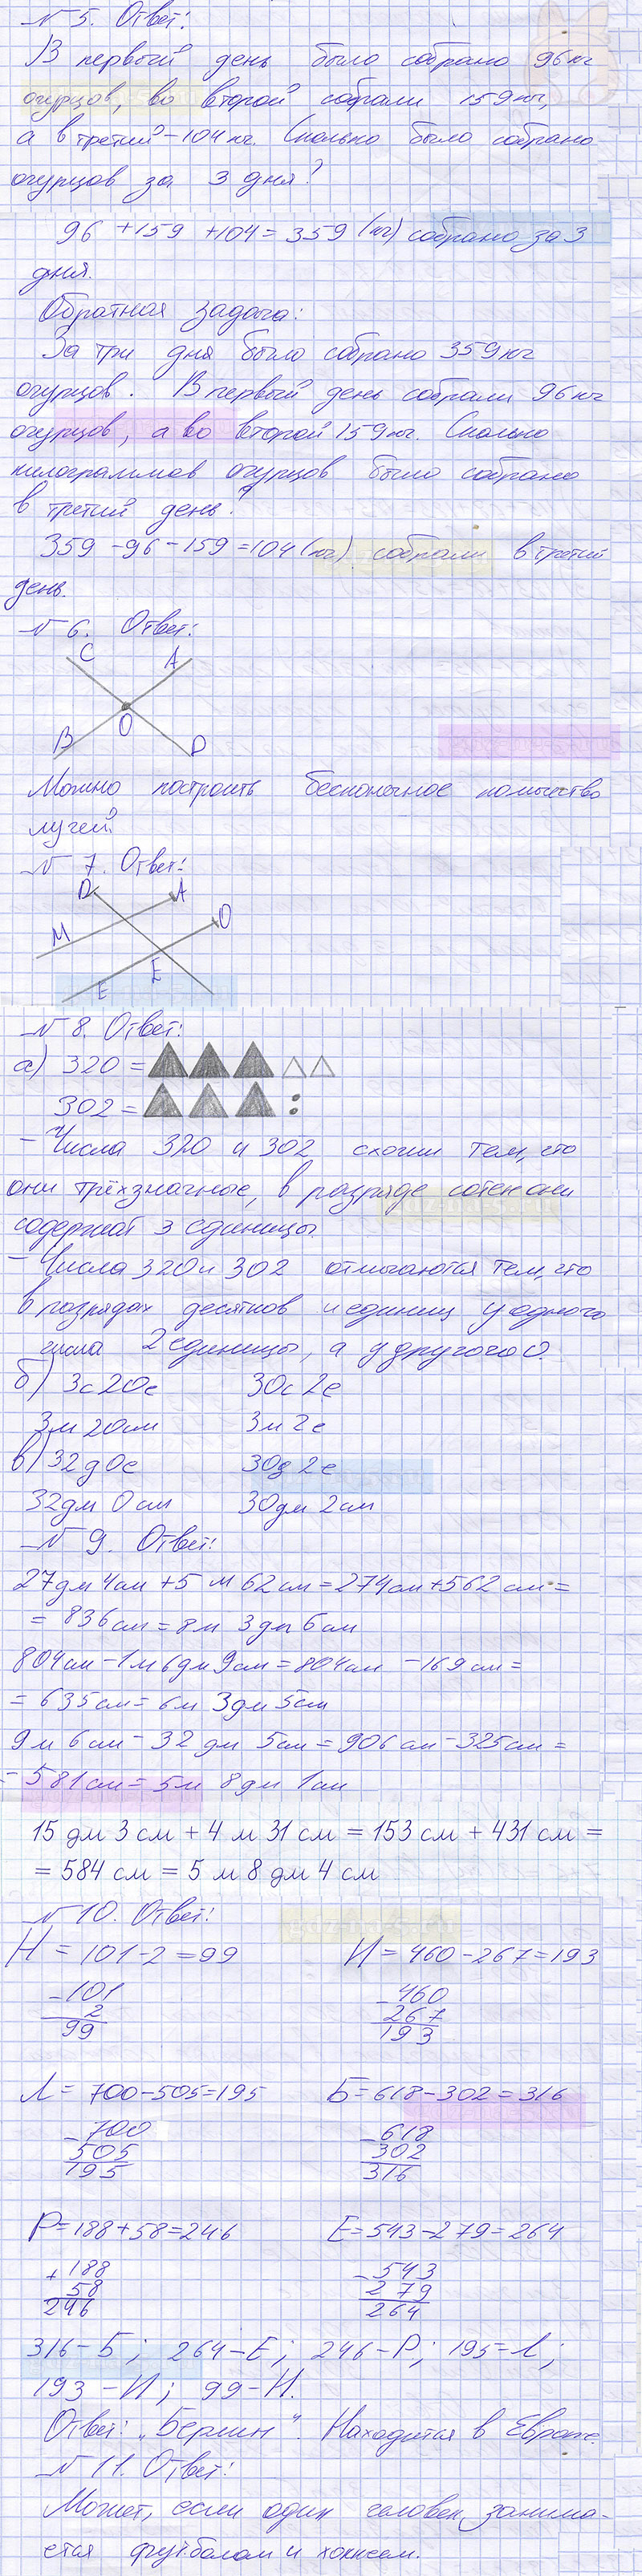 № 5. Ответ:
В первый день было собрано 96 кг
огурцов, во второй собрали 159 кг,
а в третий - 104 кг. Сколько было собрано
огурцов за 3 дня?
96 + 159 + 104 = 359 (кг) собрано за 3
дня.
Обратная задача:
За три дня было собрано 359 кг
огурцов. В первый день собрали 96 кг
огурцов, а во второй 159 кг. Сколько
килограммов огурцов было собрано
в третий день?
359 - 96 - 159 = 104 (кг) собрали в третий
день.
№ 6. Ответ:
C A
O
B D
Можно построить бесконечное количество
лучей.
№ 7. Ответ:
D A
M O
E E
№ 8. Ответ:
а) 320 =
302 =
- Числа 320 и 302 схожи тем, что
они трёхзначные, в разряде сотен они
содержат 3 единицы.
- Числа 320 и 302 отличаются тем, что
в разрядах десятков и единиц у одного
числа 2 единицы, а у другого 0.
б) 3с 20е 30с 2е
3м 20см 3м 2е
в) 32д 0е 30д 2е
32дм 0см 30дм 2см
№ 9. Ответ:
27дм 4см + 5 м 62см = 274см + 562см =
= 836см = 8м 3дм 6см
804см - 1м 6дм 9см = 804см - 169см =
= 635см = 6м 3дм 5см
9м 6см - 32 дм 5см = 906см - 325см =
= 581см = 5м 8дм 1см
15 дм 3 см + 4 м 31 см = 153 см + 431 см =
= 584 см = 5 м 8 дм 4 см
№ 10. Ответ:
Н = 101 - 2 = 99 И = 460 - 267 = 193
- 101 - 460
2 267
99 193
Л = 700 - 505 = 195 Б = 618 - 302 = 316
- 700 - 618
505 302
195 316
Р = 188 + 58 = 246 Е = 543 - 279 = 264
+ 188 - 543
58 279
246 264
316 - Б; 264 - Е; 246 - Р; 195 = Л;
193 - И; 99 - Н.
Ответ: „Берлин" Находится в Европе.
№ 11. Ответ:
Может, если один человек занима-
ется футболом и хоккеем.